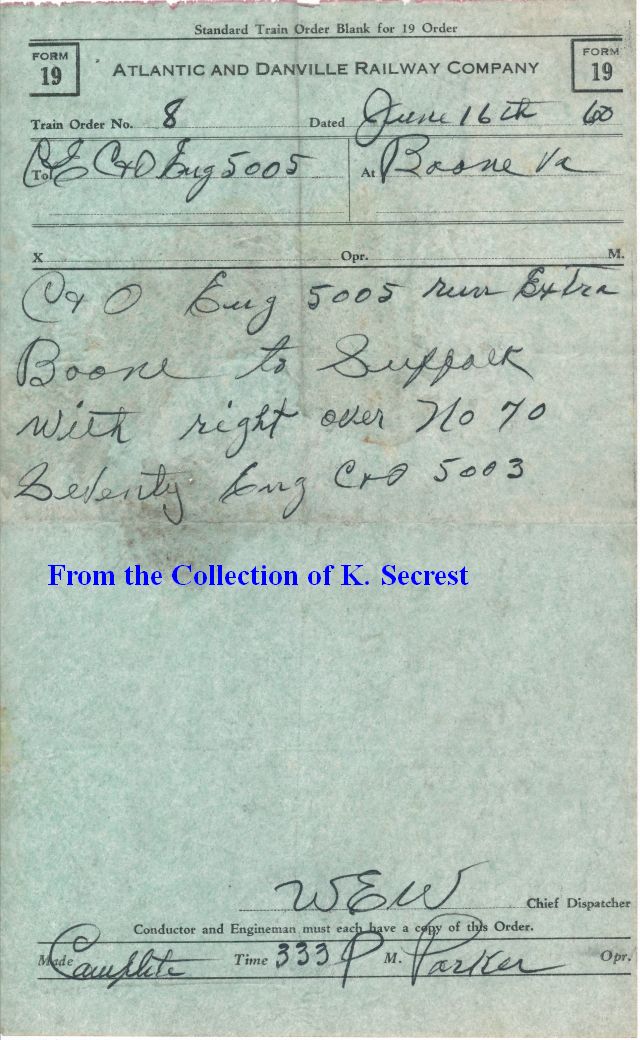 Standard Train Order Blank for 19 Order
FORM 19
ATLANTIC AND DANVILLE RAILWAY COMPANY
FORM 19
Train Order No. 8 Dated June 16th 60
To CE C&O Eng 5005 At Boone Va
X Opr. M.
C&O Eng 5005 run Extra
Boone to Suffolk
With right over No 70
Seventy Eng C&O 5003
From the Collection of K. Secrest
WEW Chief Dispatcher
Conductor and Engineman must each have a copy of this Order.
Made Complete Time 333 P M. Parker Opr.